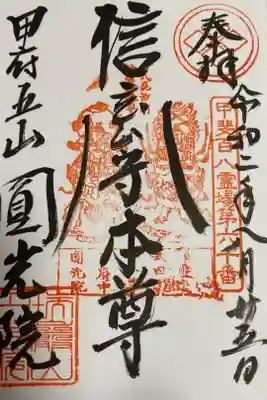 奉拝
令和二年八月廿五日
甲斐百八霊場第六十番
信玄公守本尊
府中
圓光院
甲府五山
圓光院